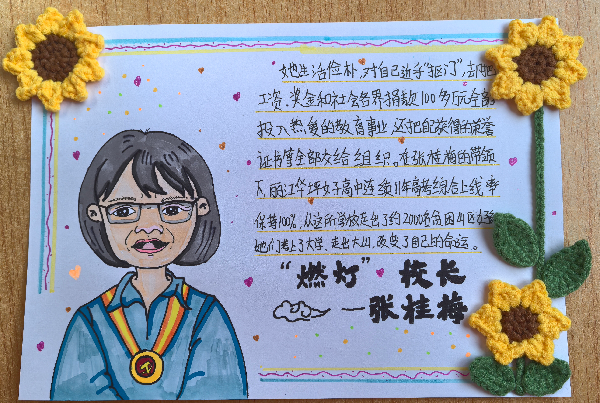 她生活俭朴，对自己近乎"抠门"，却把
工资、奖金和社会各界捐款100多万元全部
投入热爱的教育事业，还把所获得的荣誉
证书等全部交给组织。在张桂梅的带领
下，丽江华坪女子高中连续11年高考综合上线率
保持100%，从这所学校走出了约2000名贫困山区女孩
她们考上了大学，走出大山，改变了自己的命运。
"燃灯"校长
—张桂梅